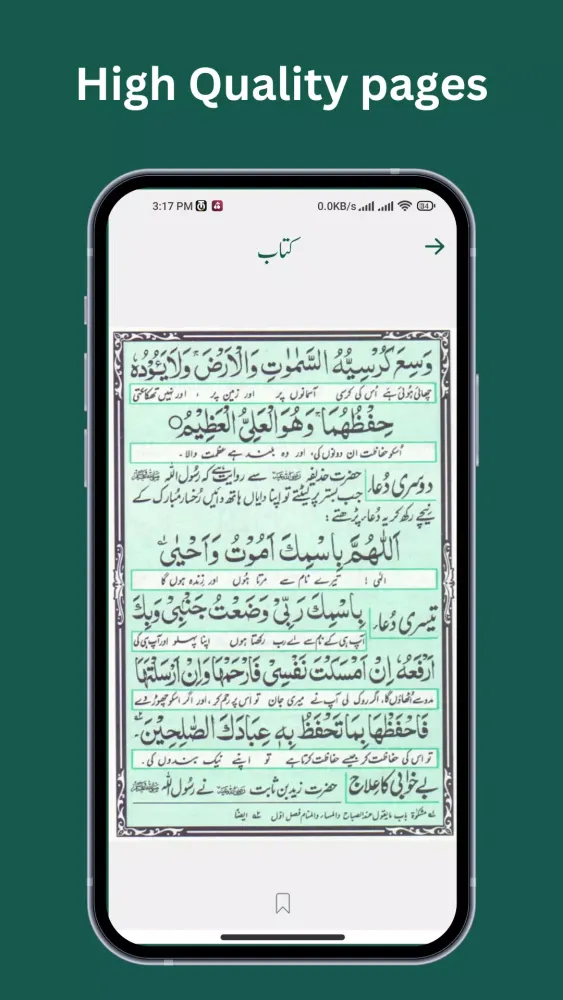 High Quality pages
3:17 PM
0.0KB/s
34
کتاب
وَسِعَ كُرْسِيُّهُ السَّمٰوٰتِ وَالْاَرْضَ ۚ وَلَا يَـُٔوْدُهٗ
چھائی ہوئی ہے اُس کی کرسی آسمانوں پر اور زمین پر ، اور نہیں تھکا سکتی
حِفْظُهُمَا ۚ وَهُوَ الْعَلِىُّ الْعَظِيْمُ ○
اُسکو حفاظت ان دونوں کی، اور وہ بلند ہے عظمت والا۔
دوسری دُعا، حضرت حذیفہ رضی اللہ عنہ سے روایت ہے کہ رسُول اللہ ﷺ
جب بستر پر لیٹتے تو اپنا دایاں ہاتھ دائیں رُخسار مُبارک کے
نیچے رکھ کر یہ دُعا پڑھتے :
اَللّٰهُمَّ بِاسْمِكَ اَمُوْتُ وَاَحْيٰى
الٰہی ! تیرے نام سے مرتا ہُوں اور زندہ ہوں گا
تیسری دُعا، بِاسْمِكَ رَبِّىْ وَضَعْتُ جَنْۢبِىْ وَبِكَ
آپ ہی کے نام سے اے رب رکھتا ہوں اپنا پہلو اور آپ ہی کی
اَرْفَعُهٗ اِنْ اَمْسَكْتَ نَفْسِىْ فَارْحَمْهَا وَاِنْ اَرْسَلْتَهَا
مدد سے اُٹھاؤں گا، اگر روک لی آپ نے میری جان تو اس پر رحم کر، اور اگر اسکو چھوڑ دے
فَاحْفَظْهَا بِمَا تَحْفَظُ بِهٖ عِبَادَكَ الصّٰلِحِيْنَ ۔
تو اس کی حفاظت کر جیسے حفاظت کرتا ہے تو اپنے نیک بندوں کی ۔
بے خوابی کا علاج حضرت زید بن ثابت رضی اللہ عنہ نے رسُول اللہ ﷺ
لہ مشکوٰۃ باب مایقول عند الصباح والمساء والمنام فصل اول ۲ہ ایضًا